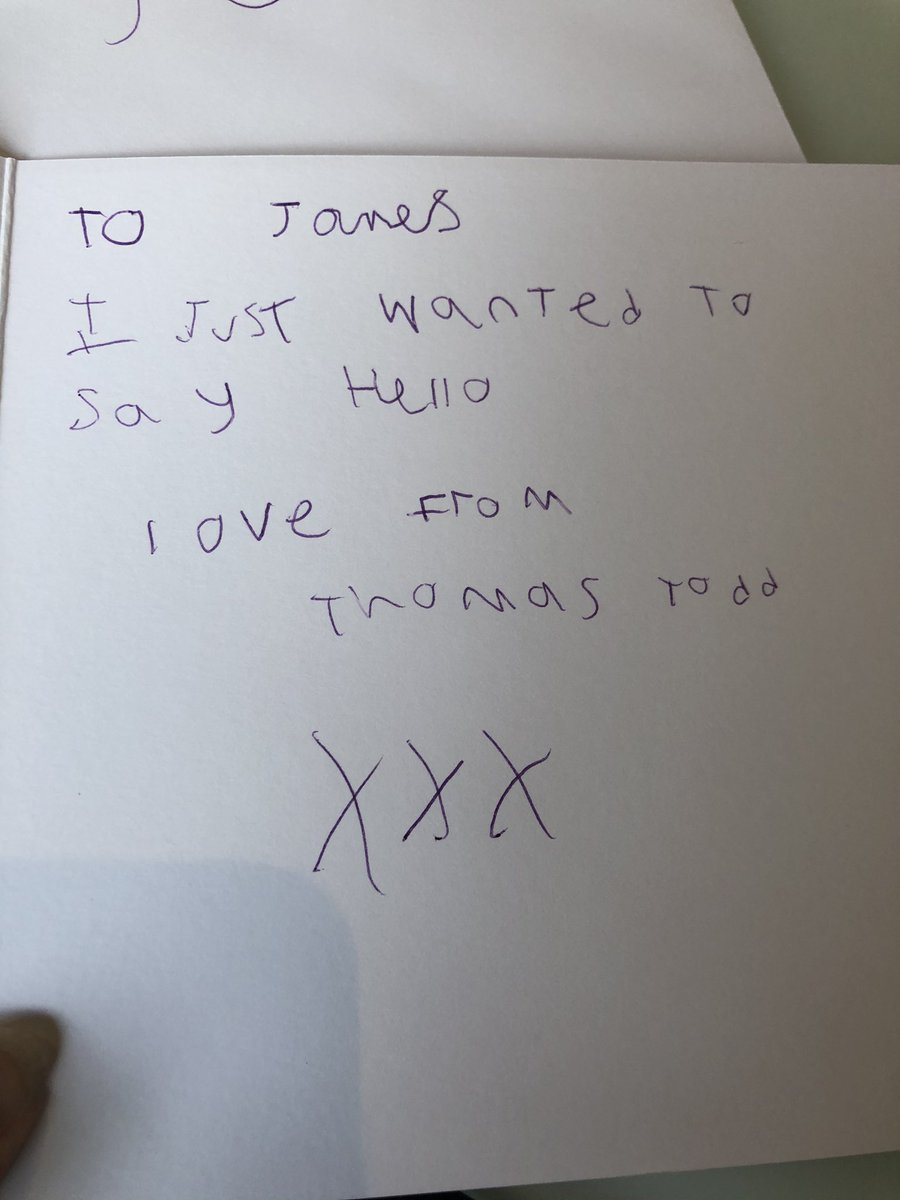 TO James
I Just wanTed To
Say Hello
love From
Thomas Todd
XXX